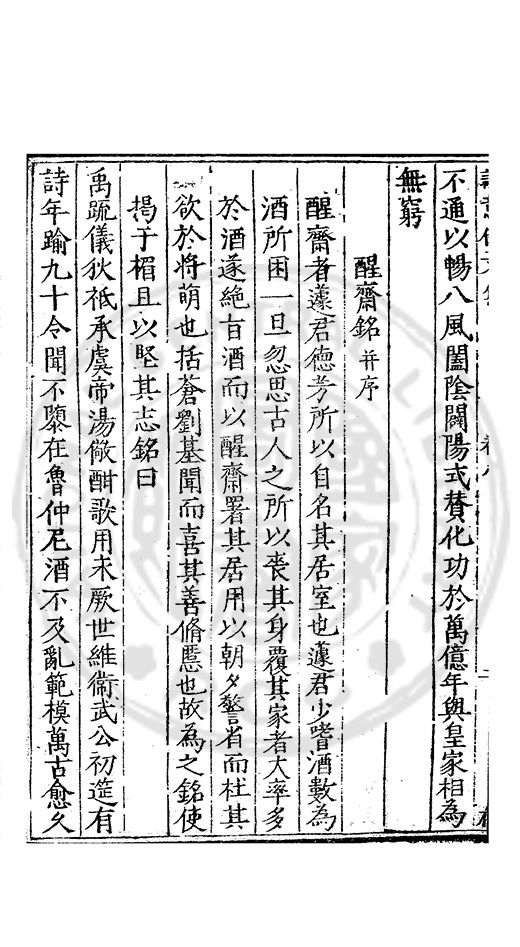 不通以暢八風闔陰闢陽式賛化功於萬億年與皇家相為
無窮
醒齋銘并序
醒齋者蘧君德芳所以自名其居室也蘧君少嗜酒數為
酒所困一旦忽思古人之所以喪其身覆其家者大率多
於酒遂絕旨酒而以醒齋署其居用以朝夕警省而杜其
欲於將萌也括蒼劉基聞而喜其善脩慝也故為之銘使
揭于楣且以堅其志銘曰
禹疏儀狄祗承虞帝湯儆酣歌用永厥世維衛武公初筵有
詩年踰九十令聞不隳在魯仲尼酒不及亂範模萬古愈久